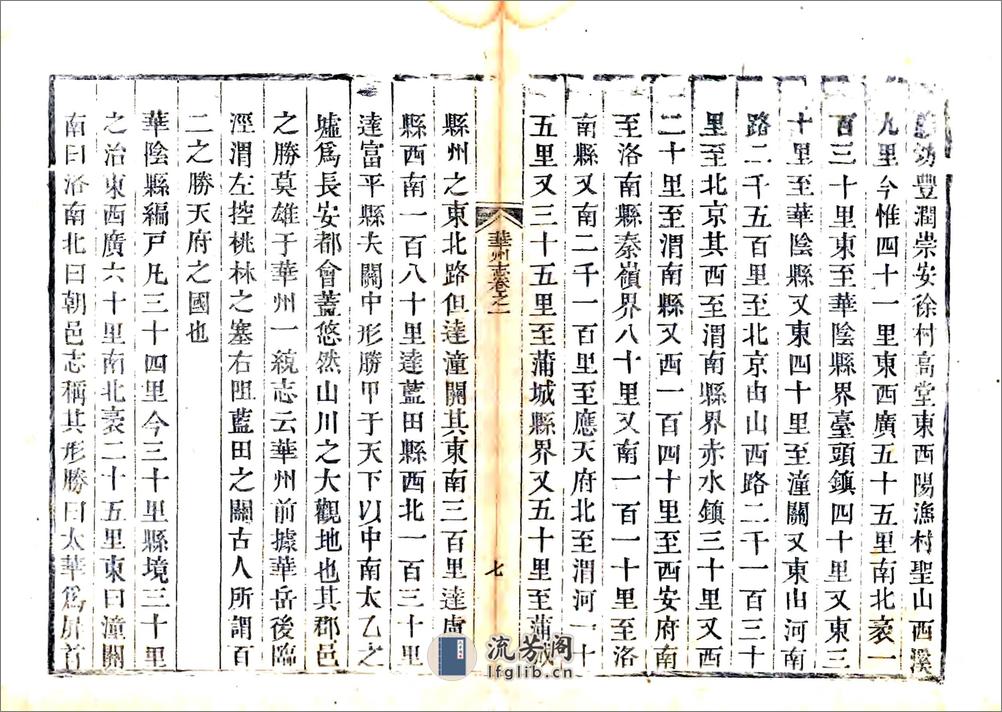 豐潤崇安徐村高堂東西陽漁村聖山西溪
九里今惟四十一里東西廣五十五里南北袤一
百三十里東至華陰縣界臺頭鎮四十里又東三
十里至華陰縣又東四十里至潼關又東由河南
路二千五百里至北京由山西路二千一百三十
里至北京其西至渭南縣界赤水鎮三十里又西
二十里至渭南縣又西一百四十里至西安府南
至洛南縣秦嶺界八十里又南一百一十里至洛
南縣又南二千一百里至應天府北至渭河一十
五里又三十五里至蒲城縣界又五十里至蒲城
華州志卷之一
七
縣州之東北路但達潼關其東南三百里達盧
縣西南一百八十里達藍田縣西北一百三十里
達富平縣夫關中形勝甲于天下以中南太乙之
墟爲長安都會蓋悠然山川之大觀地也其郡邑
之勝莫雄于華州一統志云華州前據華岳後臨
涇渭左控桃林之塞右阻藍田之關古人所謂百
二之勝天府之國也
華陰縣編戸凡三十四里今三十里縣境三十里
之治東西廣六十里南北袤二十五里東曰潼關
南曰洛南北曰朝邑志稱其形勝曰太華爲屏首
流芳阁
lfglib.cn